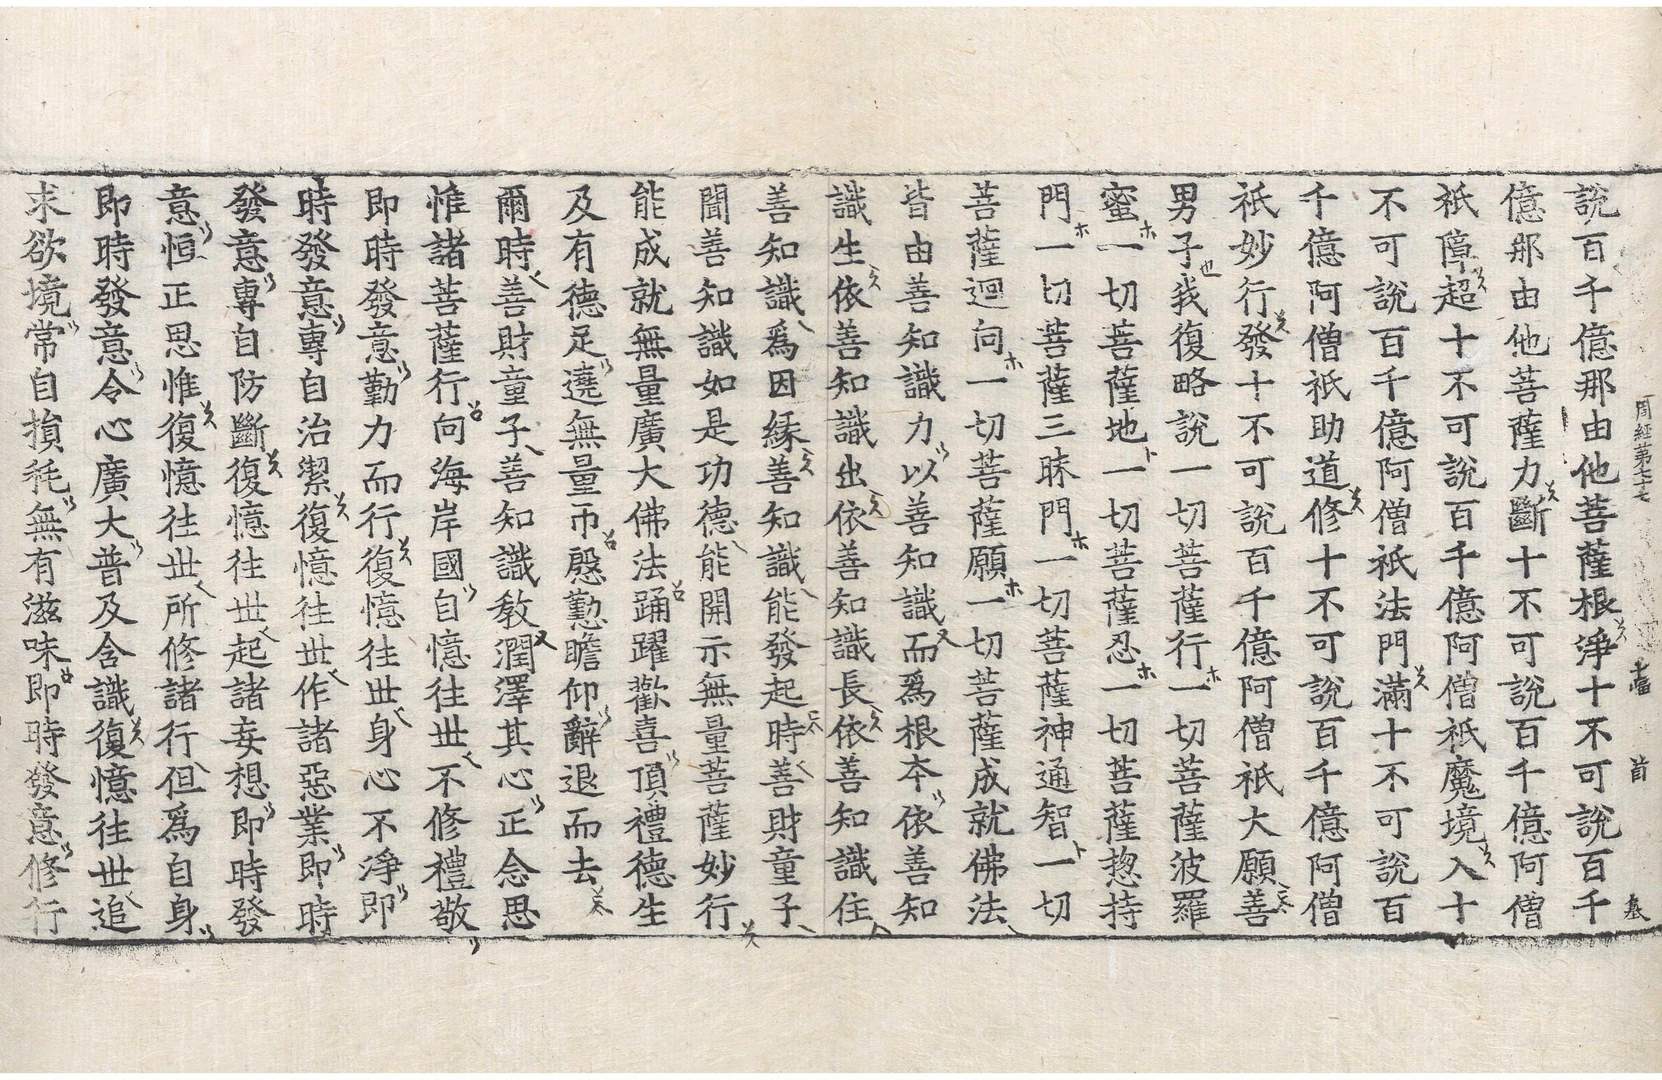 周經第七十七 十五幅 首
說百千億那由他菩薩根淨十不可說百千
億那由他菩薩力斷十不可說百千億阿僧
祇障超十不可說百千億阿僧祇魔境入十
不可說百千億阿僧祇法門滿十不可說百
千億阿僧祇助道修十不可說百千億阿僧
祇妙行發十不可說百千億阿僧祇大願善
男子我復略說一切菩薩行一切菩薩波羅
蜜一切菩薩地一切菩薩忍一切菩薩惣持
門一切菩薩三昧門一切菩薩神通智一切
菩薩迴向一切菩薩願一切菩薩成就佛法
皆由善知識力以善知識而爲根夲依善知
識生依善知識出依善知識長依善知識住
善知識爲因緣善知識能發起時善財童子
聞善知識如是功德能開示無量菩薩妙行
能成就無量廣大佛法踊躍歡喜頂禮德生
及有德足遶無量帀慇懃瞻仰辭退而去
爾時善財童子善知識教潤澤其心正念思
惟諸菩薩行向海岸國自憶往世不修禮敬
即時發意勤力而行復憶往世身心不淨即
時發意專自治潔復憶往世作諸惡業即時
發意專自防斷復憶往世起諸妄想即時發
意恒正思惟復憶往世所修諸行但爲自身
即時發意令心廣大普及含識復憶往世追
求欲境常自損耗無有滋味即時發意修行